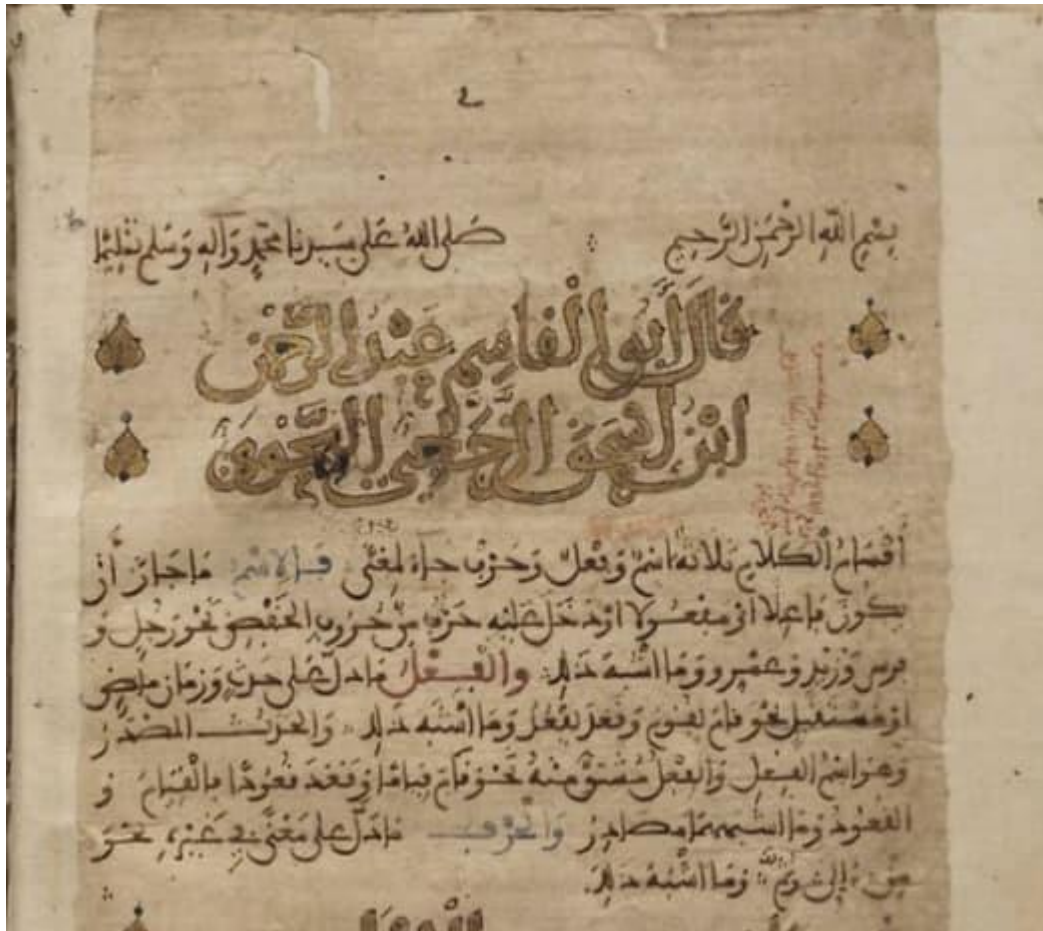 بِسْمِ اللهِ الرَّحْمَنِ الرَّحِيمِ صَلَى اللهُ عَلَى سَيِّدِنَا مُحَمَّدٍ وَآلِهِ وَسَلَّمَ تَسْلِيمًا
قَالَ أَبُو الْقَاسِمِ عَبْدُ الرَّحْمَنِ
ابْنُ إِسْحَقَ الزَّجَّاجِيُّ النَّحْوِيُّ
أَقْسَامُ الْكَلَامِ ثَلَاثَةٌ اسْمٌ وَفِعْلٌ وَحَرْفٌ جَاءَ لِمَعْنًى فَالِاسْمُ مَا جَازَ أَنْ
يَكُونَ فَاعِلًا أَوْ مَفْعُولًا أَوْ دَخَلَ عَلَيْهِ حَرْفٌ مِنْ حُرُوفِ الْخَفْضِ نَحْوَ رَجُلٍ وَ
فَرَسٍ وَزَيْدٍ وَعَمْرٍو وَمَا أَشْبَهَ ذَلِكَ وَالْفِعْلُ مَا دَلَّ عَلَى حَدَثٍ وَزَمَانٍ مَاضٍ
أَوْ مُسْتَقْبَلٍ نَحْوَ قَامَ يَقُومُ وَقَعَدَ يَقْعُدُ وَمَا أَشْبَهَ ذَلِكَ وَالْحَدَثُ الْمَصْدَرُ
وَهُوَ اسْمُ الْفِعْلِ وَالْفِعْلُ مُشْتَقٌّ مِنْهُ نَحْوَ قَامَ قِيَامًا وَقَعَدَ قُعُودًا فَالْقِيَامُ وَ
الْقُعُودُ وَمَا أَشْبَهَهُمَا مَصَادِرُ وَالْحَرْفُ مَا دَلَّ عَلَى مَعْنًى فِي غَيْرِهِ نَحْوَ
مِنْ وَإِلَى وَثُمَّ وَمَا أَشْبَهَ ذَلِكَ